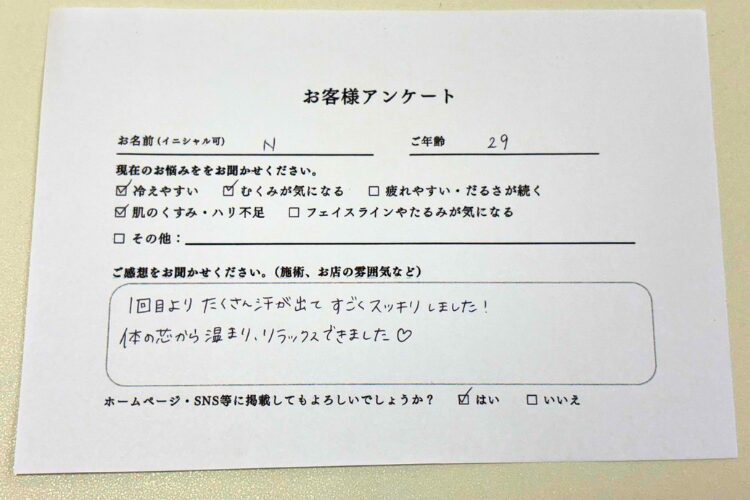 お客様アンケート
お名前(イニシャル可) N ご年齢 29
現在のお悩みををお聞かせください。
☑ 冷えやすい ☑ むくみが気になる □ 疲れやすい・だるさが続く
☑ 肌のくすみ・ハリ不足 □ フェイスラインやたるみが気になる
□ その他：
ご感想をお聞かせください。（施術、お店の雰囲気など）
1回目より たくさん汗が出て すごくスッキリ しました！
体の芯から 温まり、リラックスできました♡
ホームページ・SNS等に掲載してもよろしいでしょうか？ ☑ はい □ いいえ